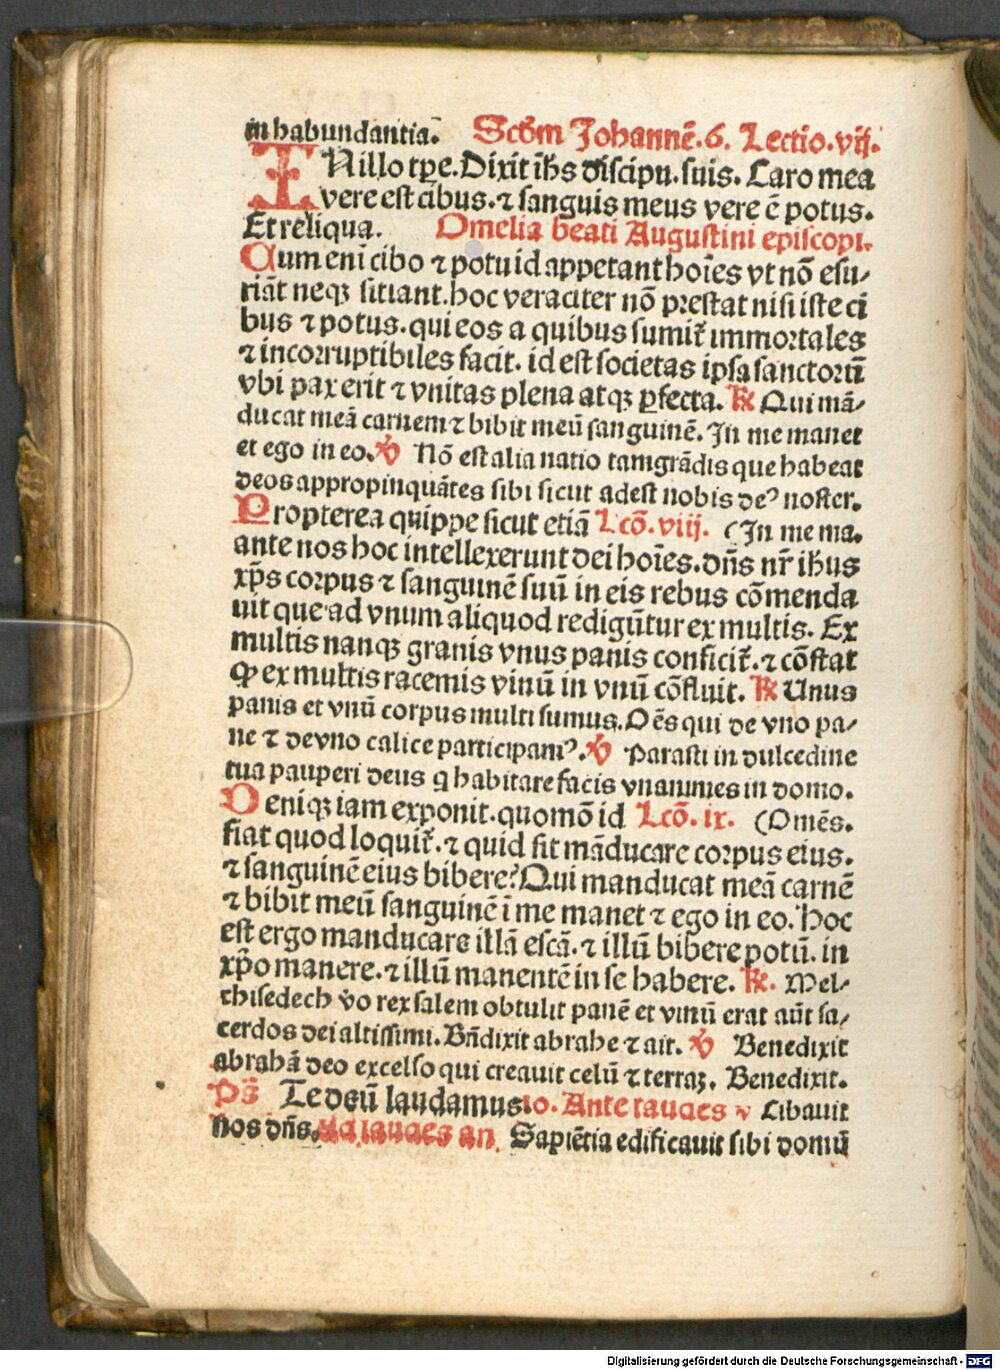 in habundantia. Scd̃m Johannē. 6. Lectio. vij.
IN illo tꝑe. Dixit ih̃s discipu. suis. Caro mea
vere est cibus. ⁊ sanguis meus vere ē potus.
Et reliqua. Omelia beati Augustini episcopi.
Cum enī cibo ⁊ potu id appetant hoīes vt nō esu⸗
riāt neqꝫ sitiant. hoc veraciter nō prestat nisi iste ci
bus ⁊ potus. qui eos a quibus sumit᷑ immortales
⁊ incorruptibiles facit. id est societas ipsa sanctorū
vbi pax erit ⁊ vnitas plena atqꝫ ꝑfecta. ℟ Qui mā⸗
ducat meā carnem ⁊ bibit meū sanguinē. In me manet
et ego in eo. ℣ Nō est alia natio tam grādis que habeat
deos appropinquātes sibi sicut adest nobis deꝰ noster.
Propterea quippe sicut etiā Lcō. viij. (In me ma.
ante nos hoc intellexerunt dei hoīes. dn̄s nr̄ ih̄us
xp̄s corpus ⁊ sanguinē suū in eis rebus cōmenda
uit que ad vnum aliquod redigūtur ex multis. Ex
multis nanqꝫ granis vnus panis conficit᷑. ⁊ cōstat
ꝙ ex multis racemis vinū in vnū cōfluit. ℟ Unus
panis et vnū corpus multi sumus. Oēs qui de vno pa⸗
ne ⁊ de vno calice participamꝰ. ℣ Parasti in dulcedine
tua pauperi deus q habitare facis vnanimes in domo.
Deniqꝫ iam exponit. quomō id Lcō. ix. (Omēs.
fiat quod loquit᷑. ⁊ quid sit māducare corpus eius.
⁊ sanguinē eius bibere? Qui manducat meā carnē
⁊ bibit meū sanguinē ī me manet ⁊ ego in eo. Hoc
est ergo manducare illā escā. ⁊ illū bibere potū. in
xp̄o manere. ⁊ illū manentē in se habere. ℟. Mel⸗
chisedech v̄o rex salem obtulit panē et vinū erat aūt sa⸗
cerdos dei altissimi. Bn̄dixit abrahe ⁊ ait. ℣ Benedixit
abrahā deo excelso qui creauit celū ⁊ terraꝫ. Benedixit.
Ps̄ Te deū laudamus. Ante laudes v Cibauit
nos dn̄s. Ad laudes an. Sapiētia edificauit sibi domū
Digitalisierung gefördert durch die Deutsche Forschungsgemeinschaft - DFG